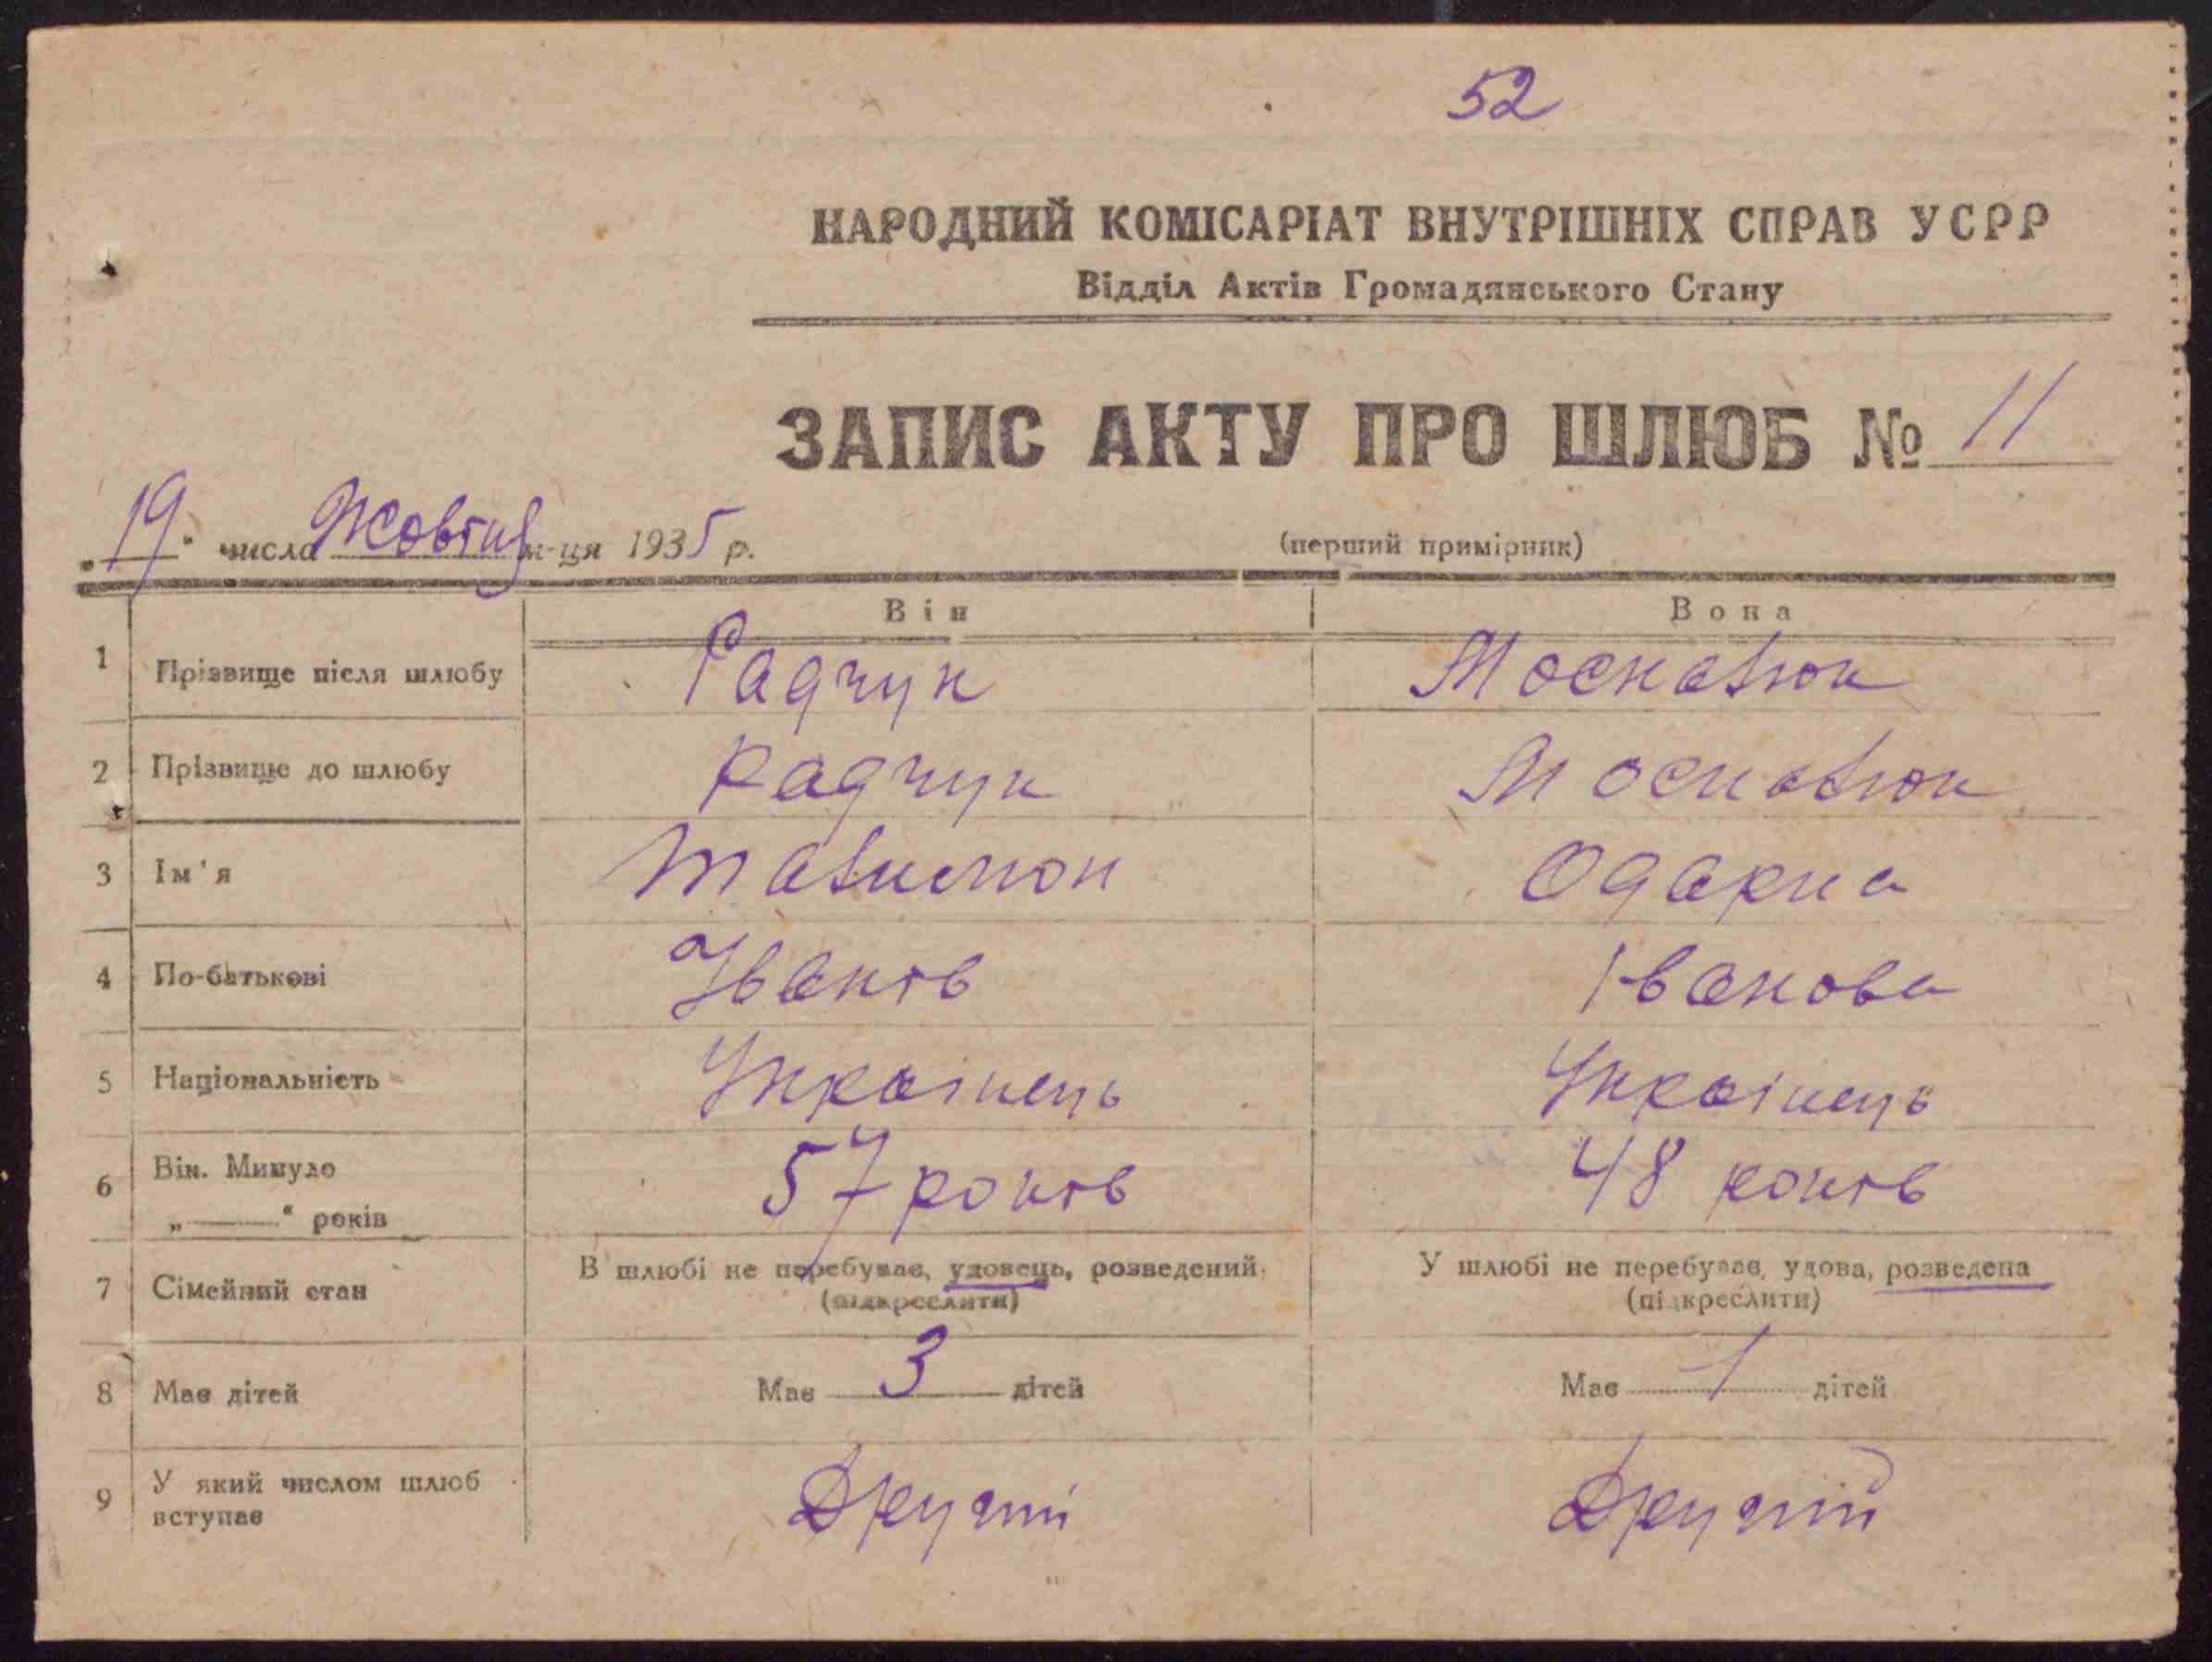 52
НАРОДНИЙ КОМІСАРІАТ ВНУТРІШНІХ СПРАВ УСРР
Відділ Актів Громадянського Стану
ЗАПИС АКТУ ПРО ШЛЮБ № 11
„19" числа Жовтня м-ця 1935 р.
(перший примірник)
Він Вона
1 Прізвище після шлюбу Радчук
2 Прізвище до шлюбу Радчук
3 Ім'я Одарка
4 По-батькові Іванів Іванова
5 Національність Українець Українець
6 Він. Минуло 57 років 48 років
„——" років
7 Сімейний стан В шлюбі не перебуває, удовець, розведений, У шлюбі не перебуває, удова, розведена
(підкреслити) (підкреслити)
8 Має дітей Має 3 дітей Має 1 дітей
9 У який числом шлюб Другий Другий
вступає